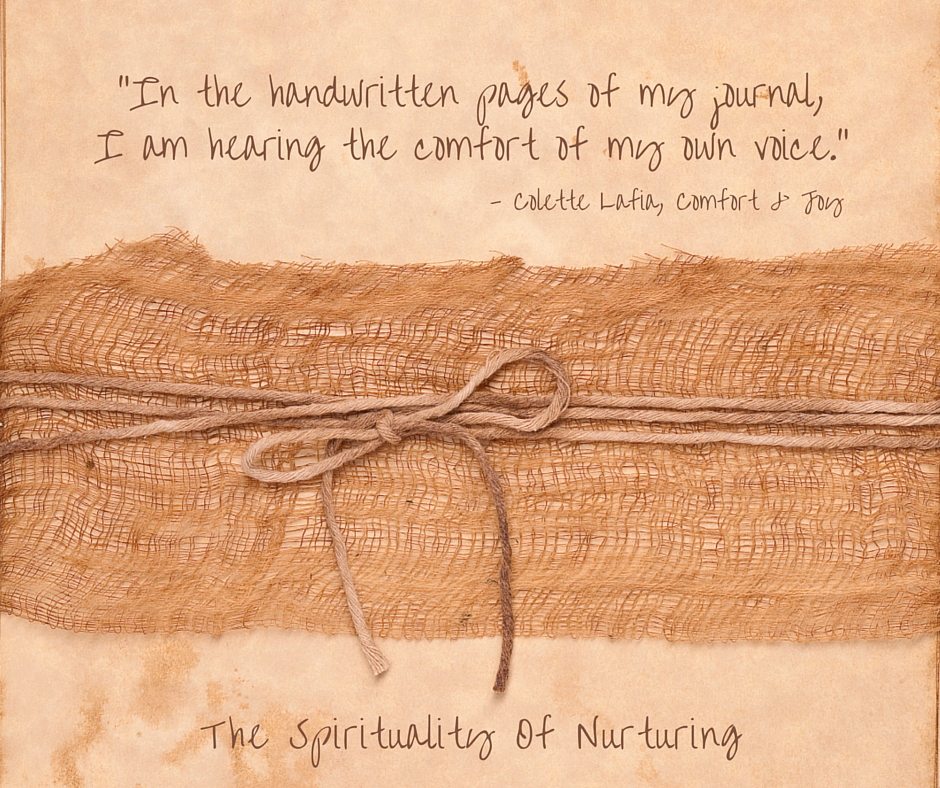 "In the handwritten pages of my journal,
I am hearing the comfort of my own voice."
- Colette Lafia, Comfort & Joy
The Spirituality Of Nurturing